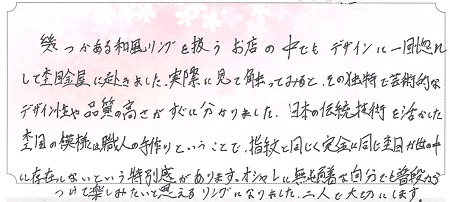 幾つかある和風リングを扱うお店の中でもデザインに一目惚れ
して杢目金屋に赴きました。実際に見て触ってみると、その独特で芸術的な
デザイン性や品質の高さがすぐに分かりました。日本の伝統技術を活かした
杢目の模様は職人の手作りということで、指紋と同じく完全に同じ杢目が世の中
に存在しないという特別感があります。オシャレに無頓着な自分でも普段から
つけて楽しみたいと思えるリングになりました。二人で大切にします。